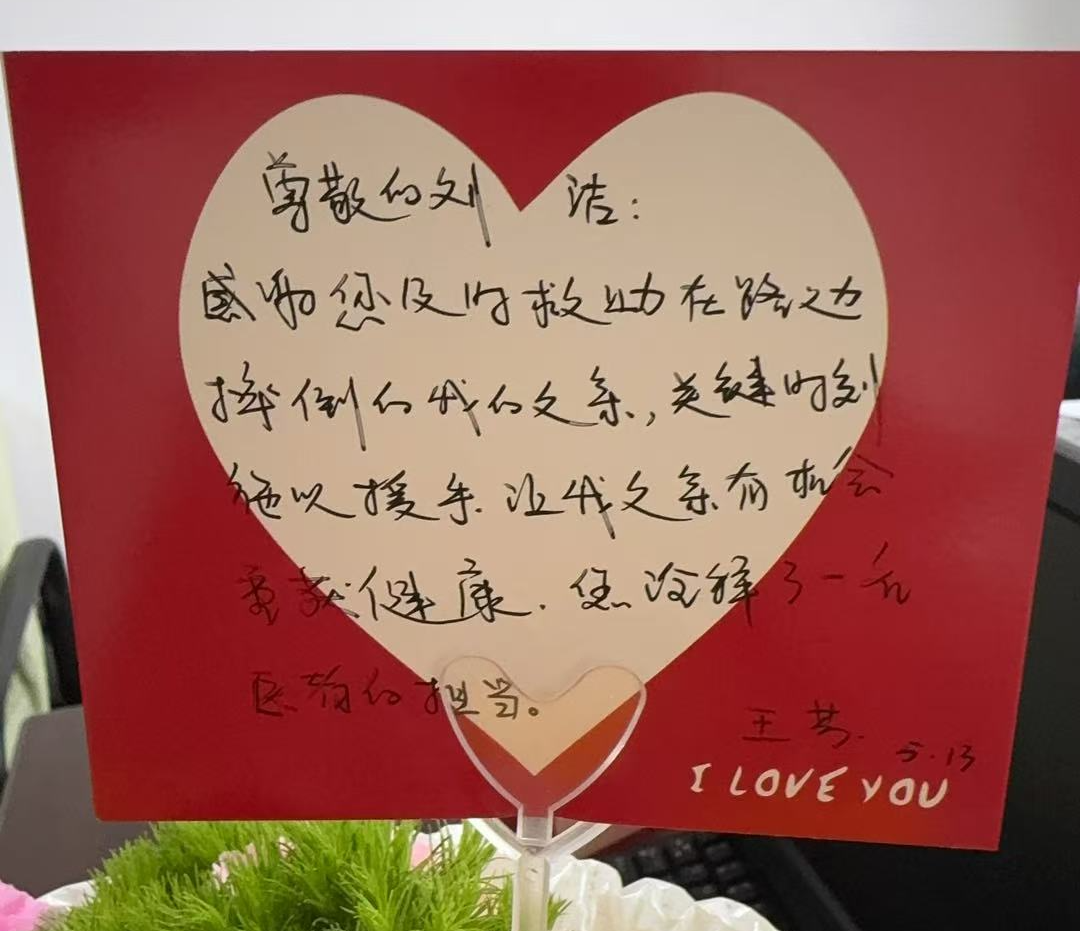 尊敬的刘 洁：
感谢您及时救助在路边
摔倒的我的父亲，关键时刻
施以援手让我父亲有机会
重获健康. 您诠释了一名
医者的担当。
王
5.13
I LOVE YOU